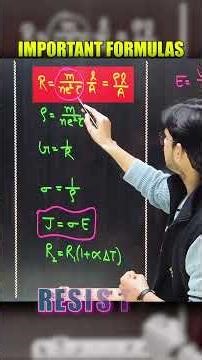 IMPORTANT FORMULAS
R = m/ne²τ l/A = ρl/A
E =
ρ = m/ne²τ
G = 1/R
σ = 1/ρ
J = σE
R₂ = R₁(1+αΔT)
RESIST